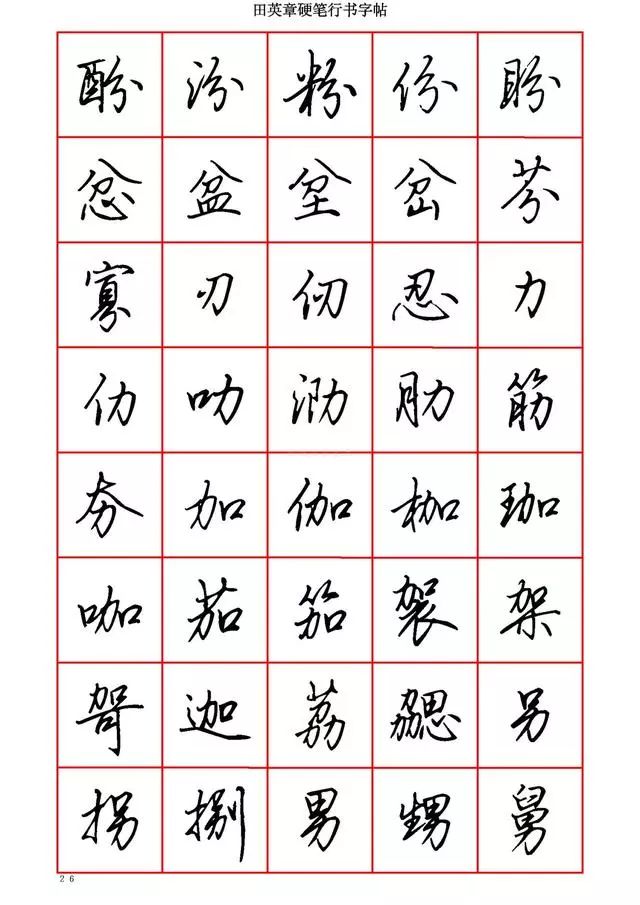 田英章硬笔行书字帖
酚 汾 粉 份 盼
忿 盆 坌 岔 芬
寡 刃 仞 忍 力
仂 叻 泐 肋 筋
夯 加 伽 枷 珈
咖 茄 笳 袈 架
哿 迦 荔 勰 另
拐 捌 男 甥 舅
26